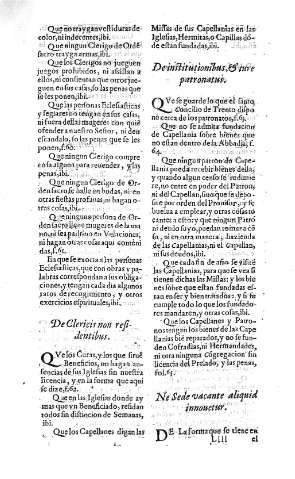 Que no traygan vestiduras de
color, ni indecentes, ibi.
Que ningun Clerigo de Ordē
sacro trayga armas, ibi.
Que los Clerigos no jueguen
juegos prohibidos, ni asistan a
ellos, ni consientan que otros jue
guen en sus casas, so las penas que
se les ponen, ibi.
Que las personas Eclesiasticas
y seglares no tengan en sus casas,
ni fuera dellas mugeres con quiē
ofender a nuestro Señor, ni den
escandalo, so las penas que se les
ponen, f.60.
Que ningun Clerigo compre
cosa alguna para revender, y las
penas, ibi.
Que ningun Clerigo de Or-
den sacro baile en bodas, ni en
otras fiestas profanas, ni hagan o
tras cosas, ibi.
Que ninguna persona de Or-
den sacro lleve mugeres de la ma
no, ni sea padrino en Velaciones,
ni hagan otras cosas aqui conteni
das, f.61.
En que se exorta a las personas
Eclesiasticas, que con obras y pa-
labras correspondan a sus obliga-
ciones, y tengan cada dia algunos
ratos de recogimiento, y otros
exercicios espirituales, ibi.
De Clericis non resi
dentibus.
QVe los Curas, y los que sirvē
Beneficios, no hagan au-
sencias de sus Iglesias sin nuestra
licencia, y en la forma que aqui
se dize, f.62.
Que en las Iglesias donde ay
mas que vn Beneficiado, residan
todos sin distincion de Semanas,
ibi.
Que los Capellanes digan las
Missas de sus Capellanias en las
Iglesias, Hermitas, o Capillas dō-
de estan fundadas, ibi.
De institutionibus, & iure
patronatus.
QVe se guarde lo que el santo
Concilio de Trento dispo
ne cerca de los patronatos, f.63.
Que no se admita fundacion
de Capellania sobre bienes que
no estan dentro de la Abbadia, f.
64.
Que ningun patron de Cape-
llania pueda recebir bienes della;
y quando algun censo se redimie
re, no entre en poder del Patron,
ni del Capellan, sino que se deposi
te por orden del Provisor, y se
buelva a emplear, y otras cosas to
cantes a esto; y que ningun Patrō
ni deudo suyo, puedan tomar a cē
so, ni en otra manera, hazienda
de las Capellanias, ni el Capellan,
ni sus deudos, ibi.
Que cada fin de año se visitē
las Capellanias, para que se vea si
tienen dichas las Missas; y los bie
nes sobre que estan fundadas es-
tan en ser y bien tratados; y si se
cumple todo lo que los fundado-
res mandaren, y otras cosas, ibi.
Que los Capellanes y Patro-
nos tengan los bienes de las Cape
llanias biē reparados, y no se fun-
den Cofradias, ni Hermandades,
ni otra ninguna cōgregacion sin
licencia del Prelado, y las penas,
fol.65.
Ne Sede vacante aliquid
innovetur.
DE La forma que se tiene en
Llll el